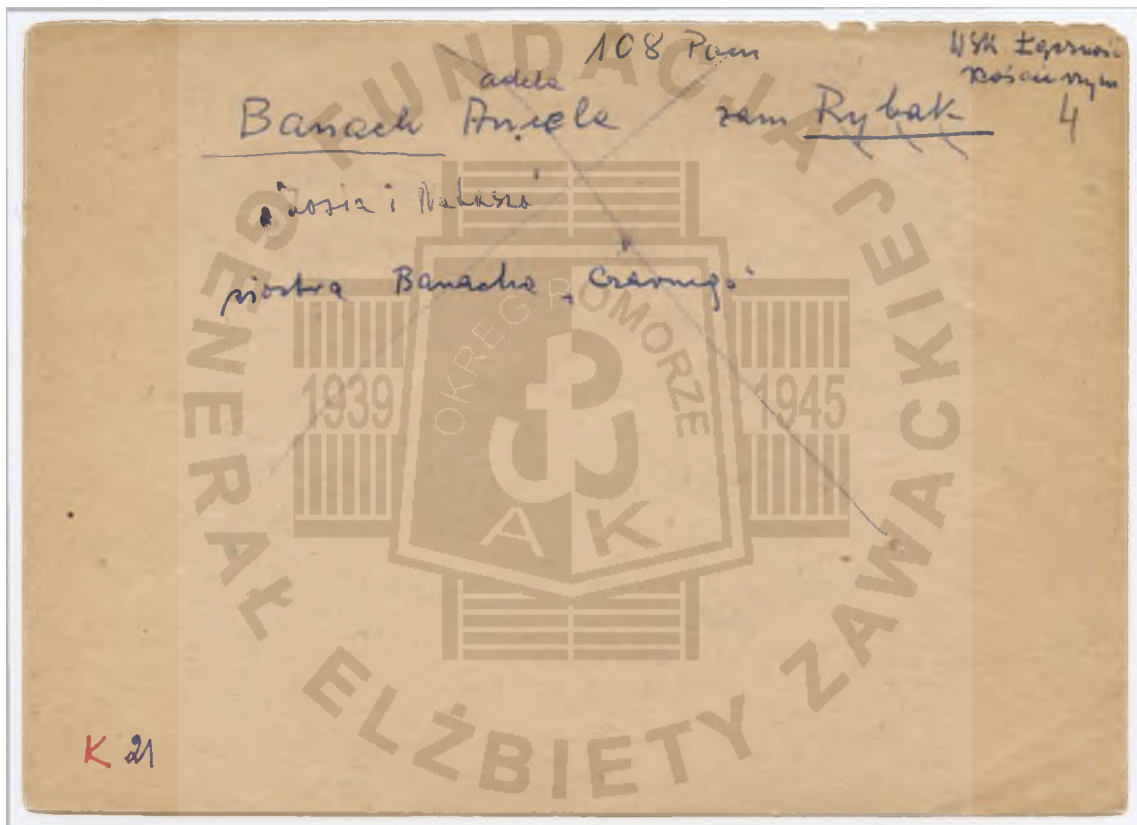 108 Pom
WSK Łączność
4
adela
Banach Aniela zam Rybak
"Zosia i Natasza"
siostra Banacha "Czarnego"
K 21
FUNDACJA
GENERAŁ ELŻBIETY ZAWACKIEJ
OKRĘG POMORZE
1939
1945
AK